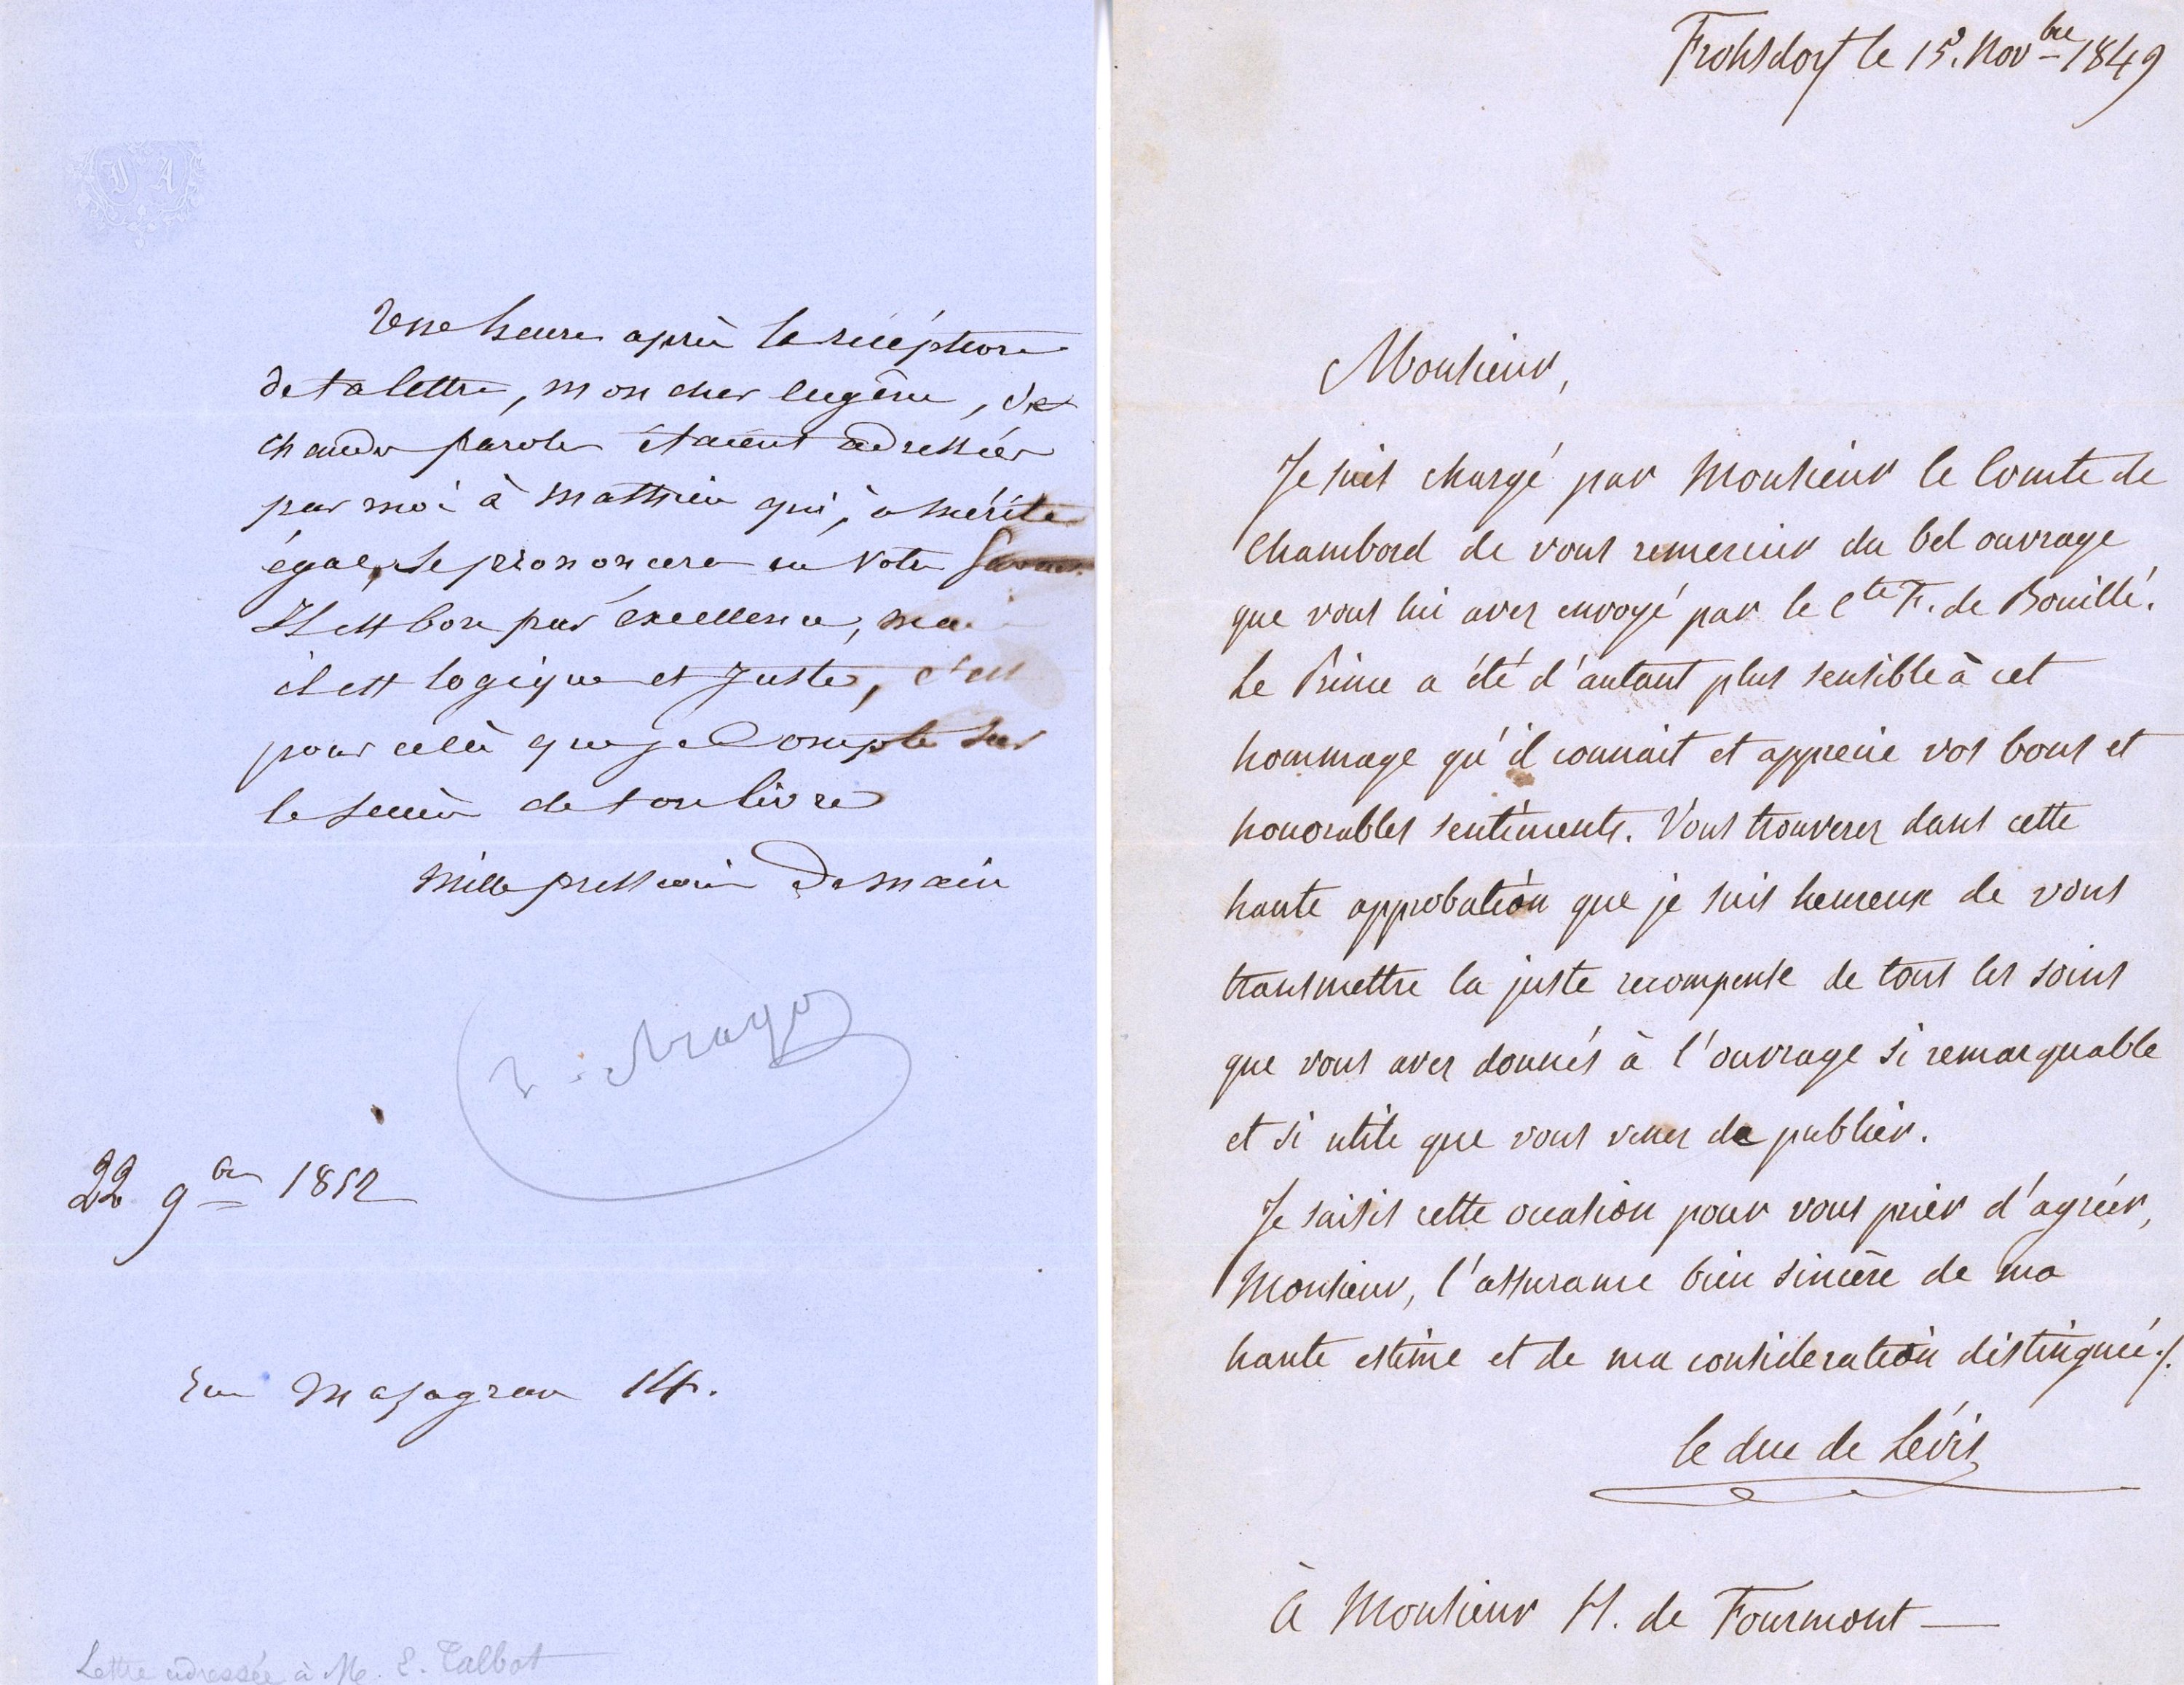 J A
Une heure après la réception
de ta lettre, mon cher Eugène, de
chaudes paroles étaient adressées
par moi à Mathieu qui, à mérite
égal, se prononcera en votre faveur.
Il est bon par excellence, mais
il est logique et juste, c'est
pour celà que je compte sur
le succès de ton livre
Mille pressions de main
J. Arago
22 9bre 1852
rue Mazagran 14.
Lettre adressée à M. E. Talbot
Frohsdorf le 15. Novbre 1849
Monsieur,
Je suis chargé par Monsieur le Comte de
Chambord de vous remercier du bel ouvrage
que vous lui avez envoyé par le Cte F. de Bouillé.
Le Prince a été d'autant plus sensible à cet
hommage qu'il connait et apprecie vos bons et
honorables sentiments. Vous trouverez dans cette
haute approbation que je suis heureux de vous
transmettre la juste recompense de tous les soins
que vous avez donnés à l'ouvrage si remarquable
et si utile que vous venez de publier.
Je saisis cette occasion pour vous prier d'agréer,
Monsieur, l'assurance bien sincère de ma
haute estime et de ma consideration distinguée./.
le duc de Lévis
à Monsieur H. de Fourmont —